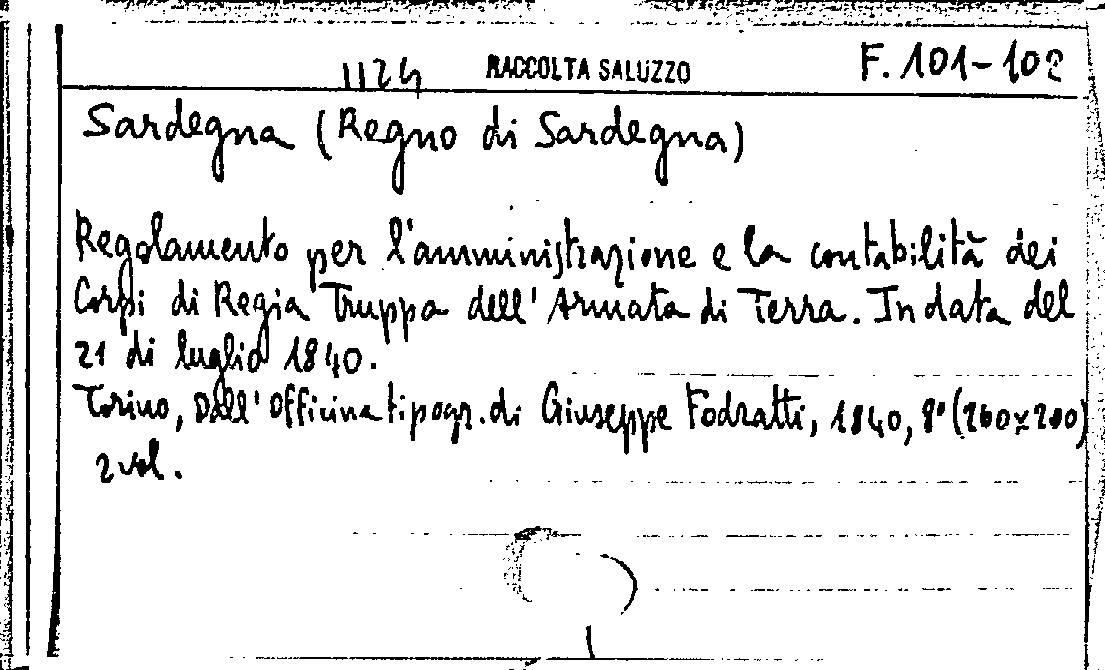 1124 RACCOLTA SALUZZO F. 101-102
Sardegna (Regno di Sardegna)
Regolamento per l'amministrazione e la contabilità dei
Corpi di Regia Truppa dell'Armata di Terra. In data del
21 di luglio 1840.
Torino, Dall'Officina tipogr. di Giuseppe Fodratti, 1840, 8° (260x200)
2 vol.